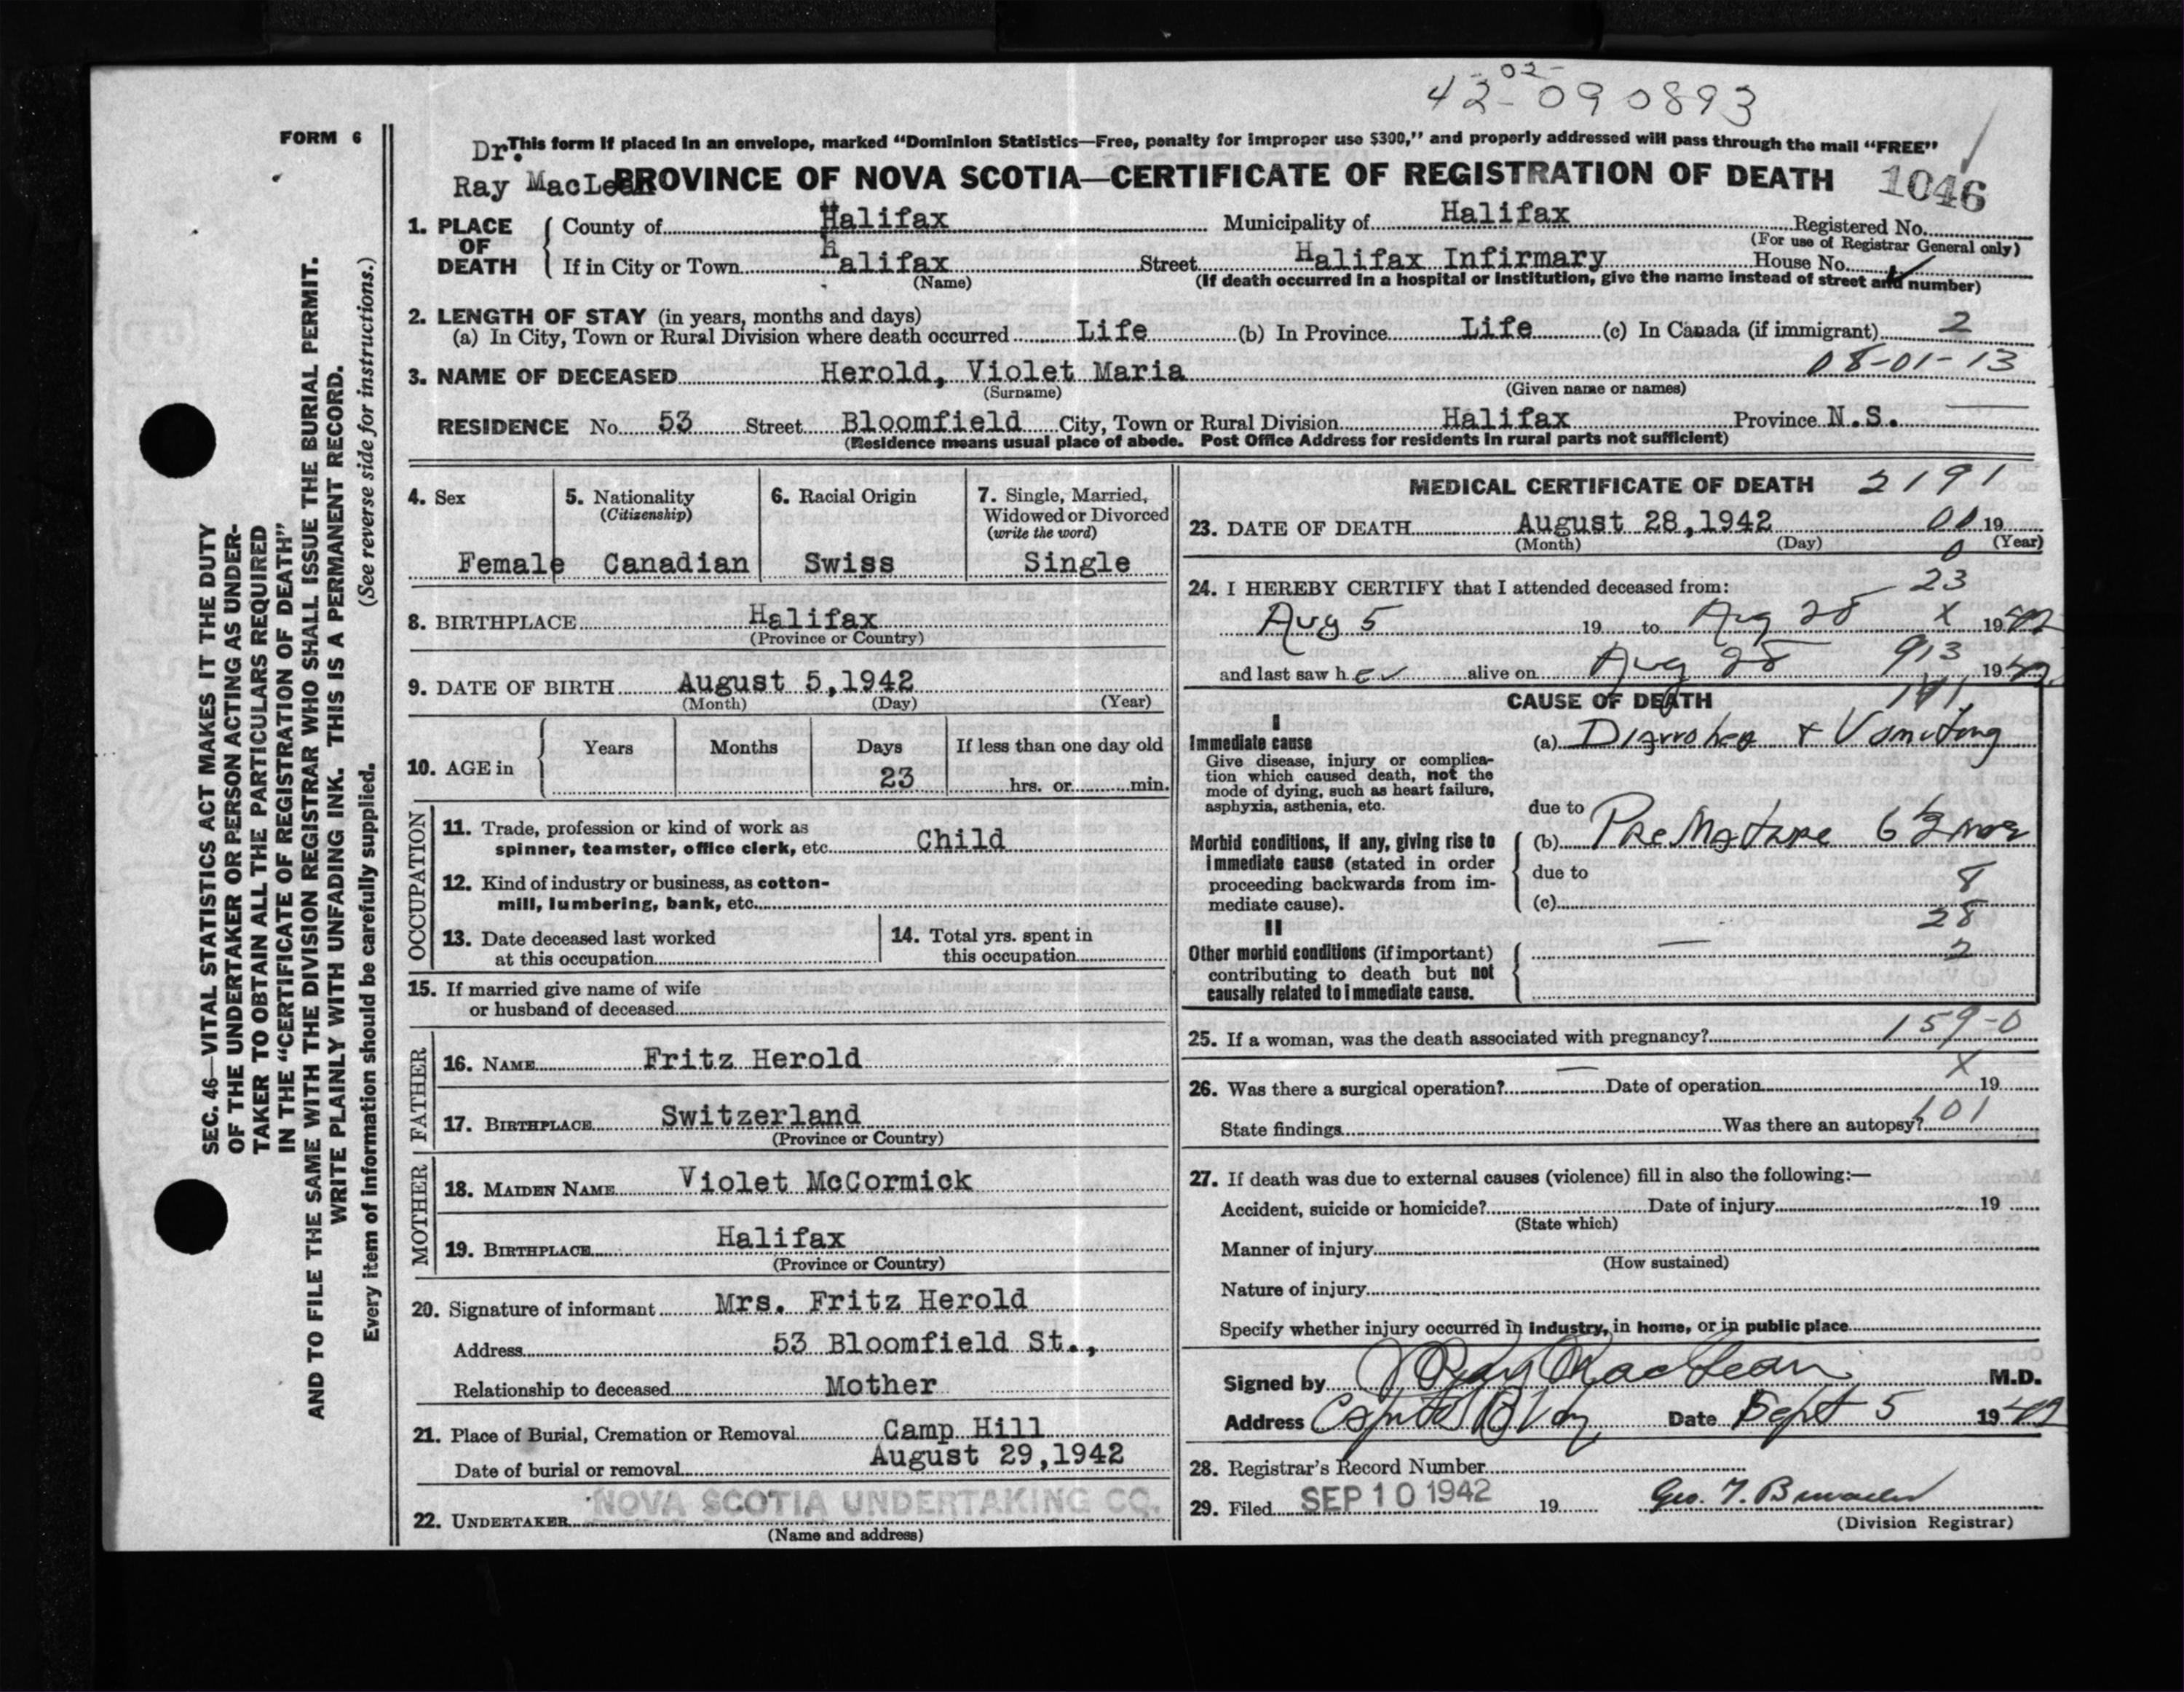 42-02-090893
FORM 6
This form if placed in an envelope, marked “Dominion Statistics—Free, penalty for improper use $300,” and properly addressed will pass through the mail “FREE”
Dr.
Ray MacLean
PROVINCE OF NOVA SCOTIA—CERTIFICATE OF REGISTRATION OF DEATH 1046
1. PLACE OF DEATH
County of Halifax Municipality of Halifax Registered No.
(For use of Registrar General only)
If in City or Town Halifax Street Halifax Infirmary House No.
(Name) (If death occurred in a hospital or institution, give the name instead of street and number)
2. LENGTH OF STAY (in years, months and days)
(a) In City, Town or Rural Division where death occurred Life (b) In Province Life (c) In Canada (if immigrant) 2
08-01-13
3. NAME OF DECEASED Herold, Violet Maria
(Surname) (Given name or names)
RESIDENCE No. 53 Street Bloomfield City, Town or Rural Division Halifax Province N.S.
(Residence means usual place of abode. Post Office Address for residents in rural parts not sufficient)
4. Sex
Female
5. Nationality
(Citizenship)
Canadian
6. Racial Origin
Swiss
7. Single, Married,
Widowed or Divorced
(write the word)
Single
8. BIRTHPLACE Halifax
(Province or Country)
9. DATE OF BIRTH August 5,1942
(Month) (Day) (Year)
10. AGE in
Years Months Days If less than one day old
23 hrs. or min.
OCCUPATION
11. Trade, profession or kind of work as
spinner, teamster, office clerk, etc. Child
12. Kind of industry or business, as cotton-
mill, lumbering, bank, etc.
13. Date deceased last worked
at this occupation
14. Total yrs. spent in
this occupation
15. If married give name of wife
or husband of deceased
FATHER
16. NAME Fritz Herold
17. BIRTHPLACE Switzerland
(Province or Country)
MOTHER
18. MAIDEN NAME Violet McCormick
19. BIRTHPLACE Halifax
(Province or Country)
20. Signature of informant Mrs. Fritz Herold
Address 53 Bloomfield St.,
Relationship to deceased Mother
21. Place of Burial, Cremation or Removal Camp Hill
Date of burial or removal August 29,1942
22. UNDERTAKER NOVA SCOTIA UNDERTAKING CO.
(Name and address)
MEDICAL CERTIFICATE OF DEATH 2191
23. DATE OF DEATH August 28,1942 00 19
(Month) (Day) (Year)
0
24. I HEREBY CERTIFY that I attended deceased from: 23
Aug 5 19 to Aug 28 X 1942
and last saw her alive on Aug 28 913 1942
CAUSE OF DEATH
I
Immediate cause
Give disease, injury or complica-
tion which caused death, not the
mode of dying, such as heart failure,
asphyxia, asthenia, etc.
(a) Diarrohea + Vomiting
due to
Morbid conditions, if any, giving rise to
immediate cause (stated in order
proceeding backwards from im-
mediate cause).
(b) PreMature 6½ mos
due to 8
(c) 28
II
Other morbid conditions (if important)
contributing to death but not
causally related to immediate cause.
— 2
25. If a woman, was the death associated with pregnancy? 159-0
X
26. Was there a surgical operation? — Date of operation 19
State findings Was there an autopsy? 101
27. If death was due to external causes (violence) fill in also the following:—
Accident, suicide or homicide? Date of injury 19
(State which)
Manner of injury
(How sustained)
Nature of injury
Specify whether injury occurred in industry, in home, or in public place
Signed by J Ray MacLean M.D.
Address Date Sept 5 1942
28. Registrar's Record Number
29. Filed SEP 10 1942 19 Geo. 
(Division Registrar)
SEC. 46—VITAL STATISTICS ACT MAKES IT THE DUTY
OF THE UNDERTAKER OR PERSON ACTING AS UNDER-
TAKER TO OBTAIN ALL THE PARTICULARS REQUIRED
IN THE “CERTIFICATE OF REGISTRATION OF DEATH”
AND TO FILE THE SAME WITH THE DIVISION REGISTRAR WHO SHALL ISSUE THE BURIAL PERMIT.
WRITE PLAINLY WITH UNFADING INK. THIS IS A PERMANENT RECORD.
Every item of information should be carefully supplied. (See reverse side for instructions.)